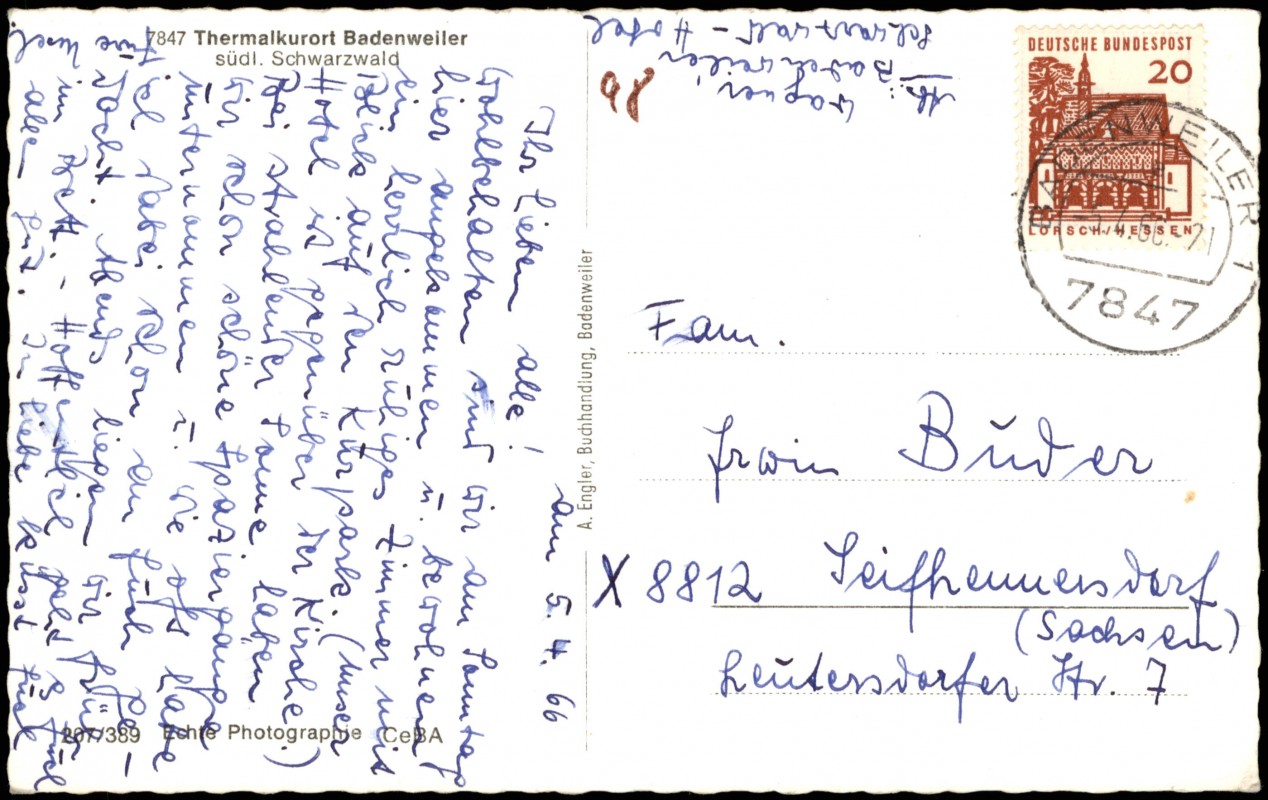 7847 Thermalkurort Badenweiler
südl. Schwarzwald
am 5. 4. 66
Ihr Lieben alle!
Wohlbehalten sind wir am Sonntag
hier angekommen u. bewohnen
ein herrlich ruhiges Zimmer mit
Blick auf den Kurpark. (Unser
Hotel ist gegenüber der Kirche.)
Bei strahlender Sonne haben
wir schon schöne Spaziergänge
unternommen u. wie oft habe
ich dabei schon an Euch ge-
dacht. Abends liegen wir früh
im Bett. - Hoffentlich geht es Euch
allen gut. In Liebe küsst Euch
Eure Ursel
207/389 Echte Photographie CeBA
A. Engler, Buchhandlung, Badenweiler
Wagner
Badenweiler
Schwarzwald-Hotel
DEUTSCHE BUNDESPOST
20
LORSCH/HESSEN
BADENWEILER 1
-5.4.66.-21
7847
Fam.
Erwin Buder
X 8812 Seifhennersdorf
(Sachsen)
Leutersdorfer Str. 7